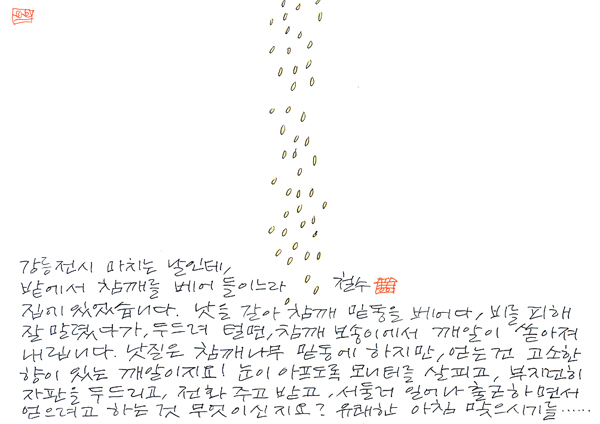 강릉전시 마치는 날인데,
밭에서 참깨를 베어 들이느라 철수
집에 있었습니다. 낫을 갈아 참깨 밑동을 베어다, 비를 피해
잘 말렸다가, 두드려 털면, 참깨 보송이에서 깨알이 쏟아져
내립니다. 낫질은 참깨나무 밑동에 하지만, 얻는건 고소한
향이 있는 깨알이지요! 눈이 아프도록 모니터를 살피고, 부지런히
자판을 두드리고, 전화 주고 받고, 서둘러 일어나 출근하면서
얻으려고 하는 것 무엇이신지요? 유쾌한 아침 맞으시기를……